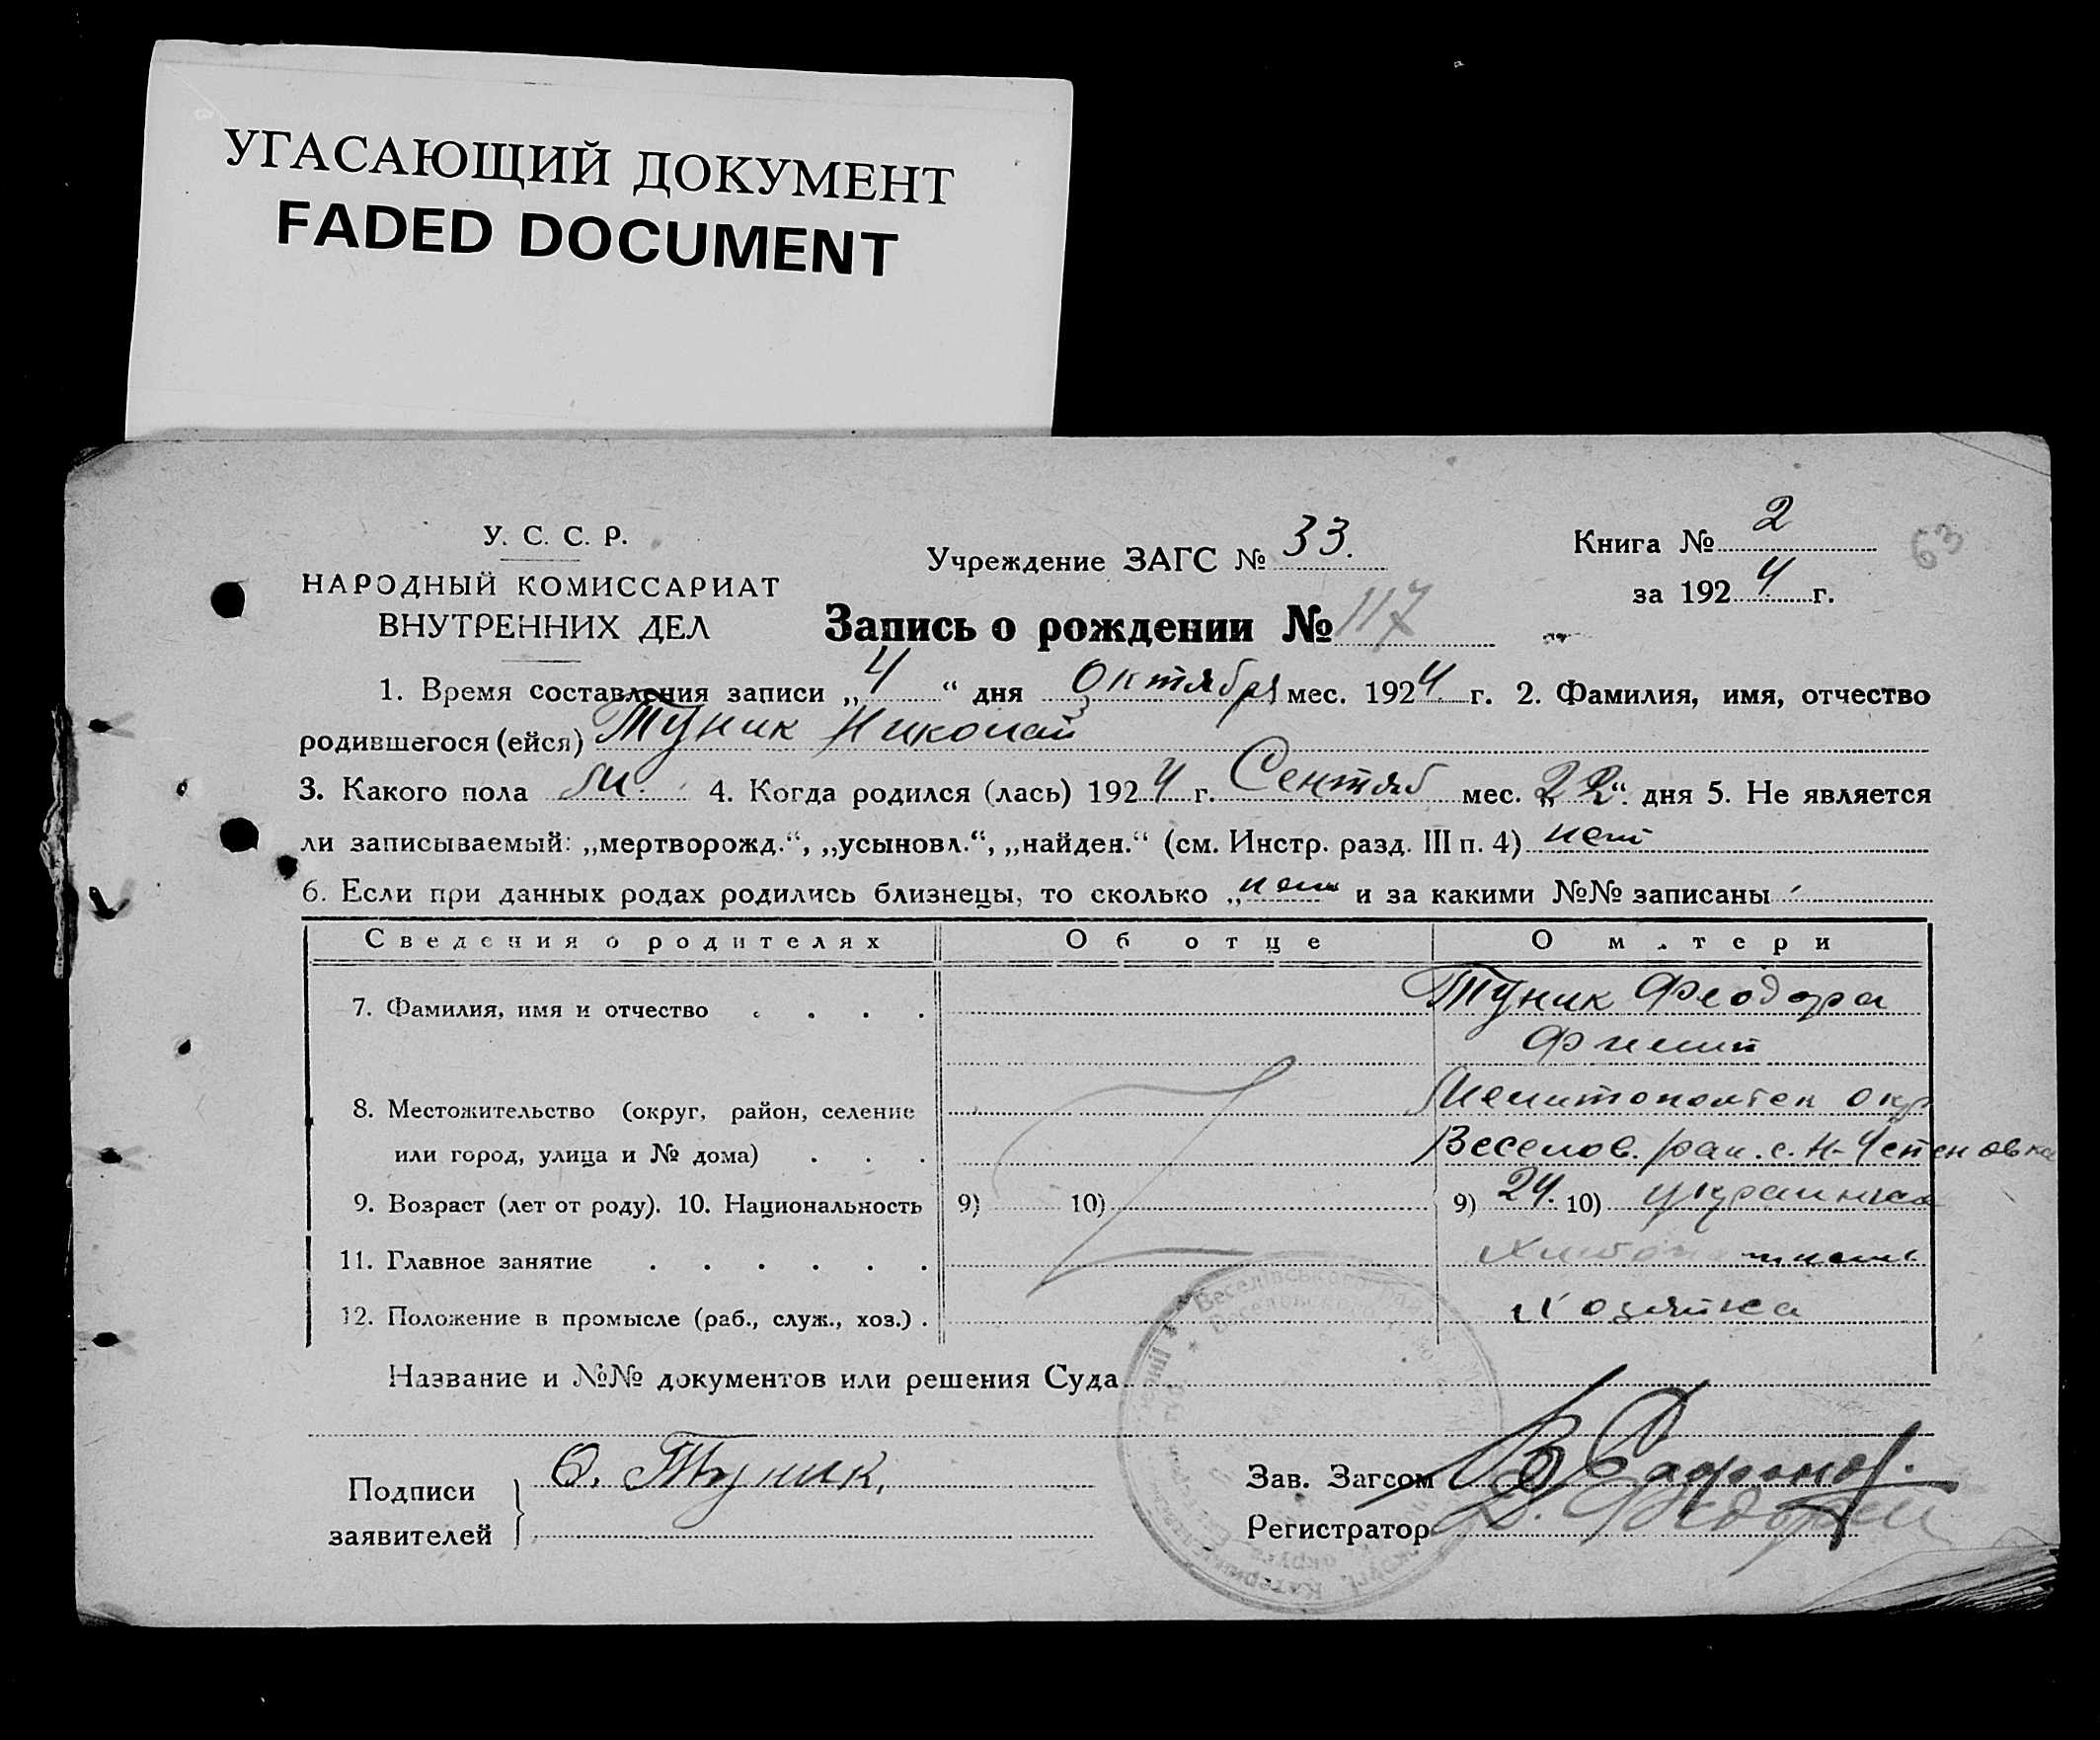 УГАСАЮЩИЙ ДОКУМЕНТ
FADED DOCUMENT
У. С. С. Р.
НАРОДНЫЙ КОМИССАРИАТ
ВНУТРЕННИХ ДЕЛ
Учреждение ЗАГС № 33.
Книга № 2
за 1924 г.
63
Запись о рождении № 117
1. Время составления записи „4“ дня Октября мес. 1924 г. 2. Фамилия, имя, отчество
родившегося (ейся) Туник Николай
3. Какого пола м. 4. Когда родился (лась) 1924 г. Сентяб мес. „22“ дня 5. Не является
ли записываемый: „мертворожд.“, „усыновл.“, „найден.“ (см. Инстр. разд. III п. 4) нет
6. Если при данных родах родились близнецы, то сколько „нет и за какими №№ записаны
Сведения о родителях Об отце О м.тери
7. Фамилия, имя и отчество . . . . Туник Феодора
8. Местожительство (округ, район, селение окр
или город, улица и № дома) . . . Веселов. рай. с.
9. Возраст (лет от роду). 10. Национальность 9) 10) 9) 24. 10) украинка
11. Главное занятие . . . . . .
12. Положение в промысле (раб., служ., хоз.) . Хозяйка
Название и №№ документов или решения Суда
Подписи
заявителей
Ф. Туник,
Зав. Загсом В Сафонов.
Регистратор
Веселівського
Веселовского